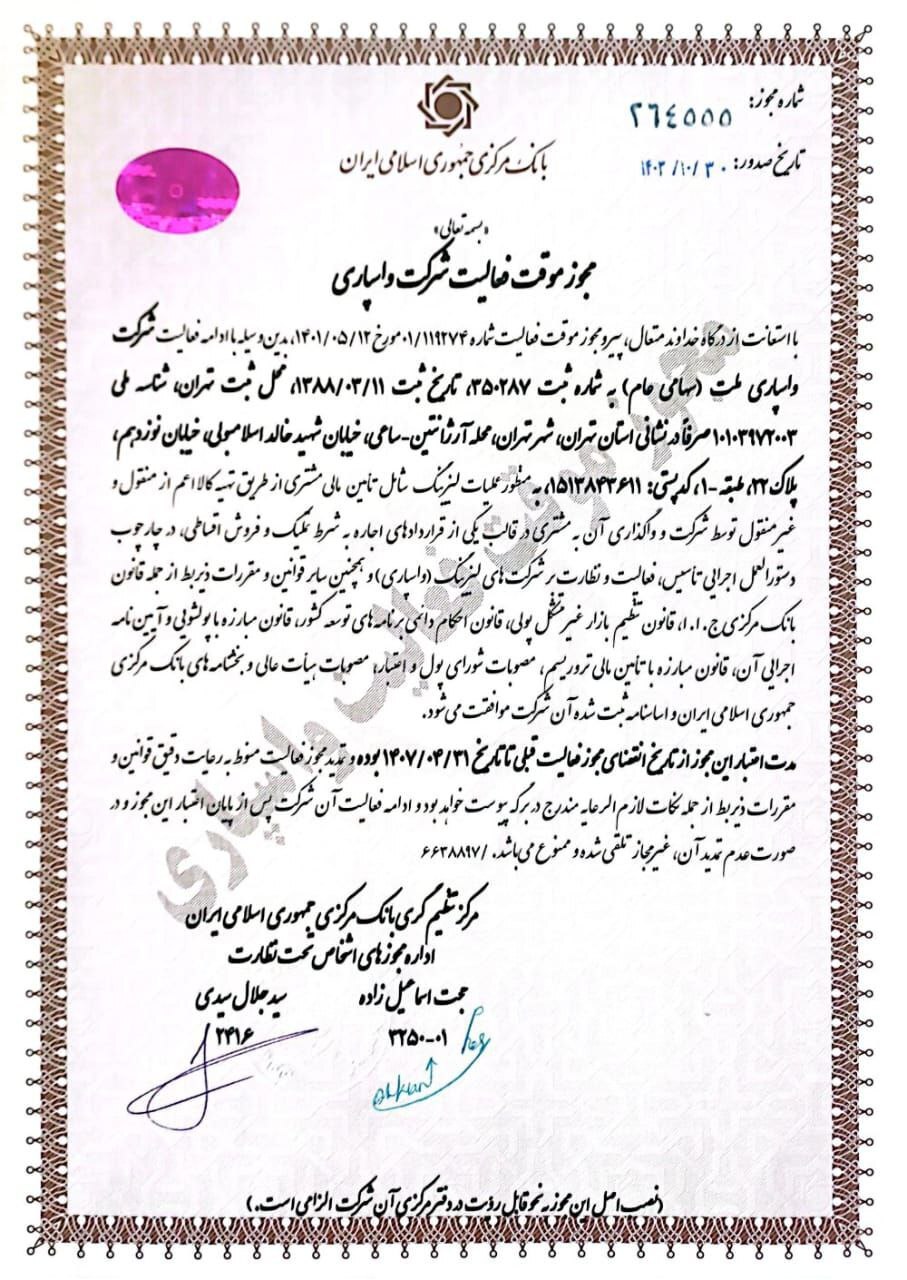 شماره مجوز: ۲۶۴۵۵۵
تاریخ صدور: ۱۴۰۳/۱۰/۳۰
بانک مرکزی جمهوری اسلامی ایران
«بسمه تعالی»
مجوز موقت فعالیت شرکت واسپاری
با استعانت از درگاه خداوند متعال، پیرو مجوز موقت فعالیت شماره ۰۱/۱۱۹۲۷۴ مورخ ۱۴۰۱/۰۵/۱۲، بدین وسیله با ادامه فعالیت شرکت
واسپاری ملت (سهامی عام) به شماره ثبت ۳۵۰۲۸۷، تاریخ ثبت ۱۳۸۸/۰۳/۱۱، محل ثبت تهران، شناسه ملی
۱۰۱۰۳۹۷۲۰۰۳ صرفاً در نشانی استان تهران، شهر تهران، محله آرژانتین-ساعی، خیابان شهید خالد اسلامبولی، خیابان نوزدهم،
پلاک ۲۲، طبقه ۱-، کدپستی: ۱۵۱۳۸۴۳۶۱۱، به منظور عملیات لیزینگ شامل تأمین مالی مشتری از طریق تهیه کالا اعم از منقول و
غیرمنقول توسط شرکت و واگذاری آن به مشتری در قالب یکی از قراردادهای اجاره به شرط تملیک و فروش اقساطی، در چارچوب
دستورالعمل اجرایی تأسیس، فعالیت و نظارت بر شرکت‌های لیزینگ (واسپاری) و همچنین سایر قوانین و مقررات ذیربط از جمله قانون
بانک مرکزی ج.ا.ا، قانون تنظیم بازار غیرمتشکل پولی، قانون احکام دائمی برنامه‌های توسعه کشور، قانون مبارزه با پولشویی و آیین نامه
اجرایی آن، قانون مبارزه با تأمین مالی تروریسم، مصوبات شورای پول و اعتبار، مصوبات هیأت عالی و بخشنامه‌های بانک مرکزی
جمهوری اسلامی ایران و اساسنامه ثبت شده آن شرکت موافقت می‌شود.
مدت اعتبار این مجوز از تاریخ انقضای مجوز فعالیت قبلی تا تاریخ ۱۴۰۷/۰۴/۳۱ بوده و تمدید مجوز فعالیت منوط به رعایت دقیق قوانین و
مقررات ذیربط از جمله نکات لازم الرعایه مندرج در برگه پیوست خواهد بود و ادامه فعالیت آن شرکت پس از پایان اعتبار این مجوز و در
صورت عدم تمدید آن، غیرمجاز تلقی شده و ممنوع می‌باشد. /۶۶۳۸۸۹۷
مجوز موقت فعالیت واسپاری
مرکز تنظیم‌گری بانک مرکزی جمهوری اسلامی ایران
اداره مجوزهای اشخاص تحت نظارت
حجت اسماعیل زاده سید جلال سیدی
۳۲۵۰-۰۱ ۲۴۱۶
(نصب اصل این مجوز به نحو قابل رؤیت در دفتر مرکزی آن شرکت الزامی است.)